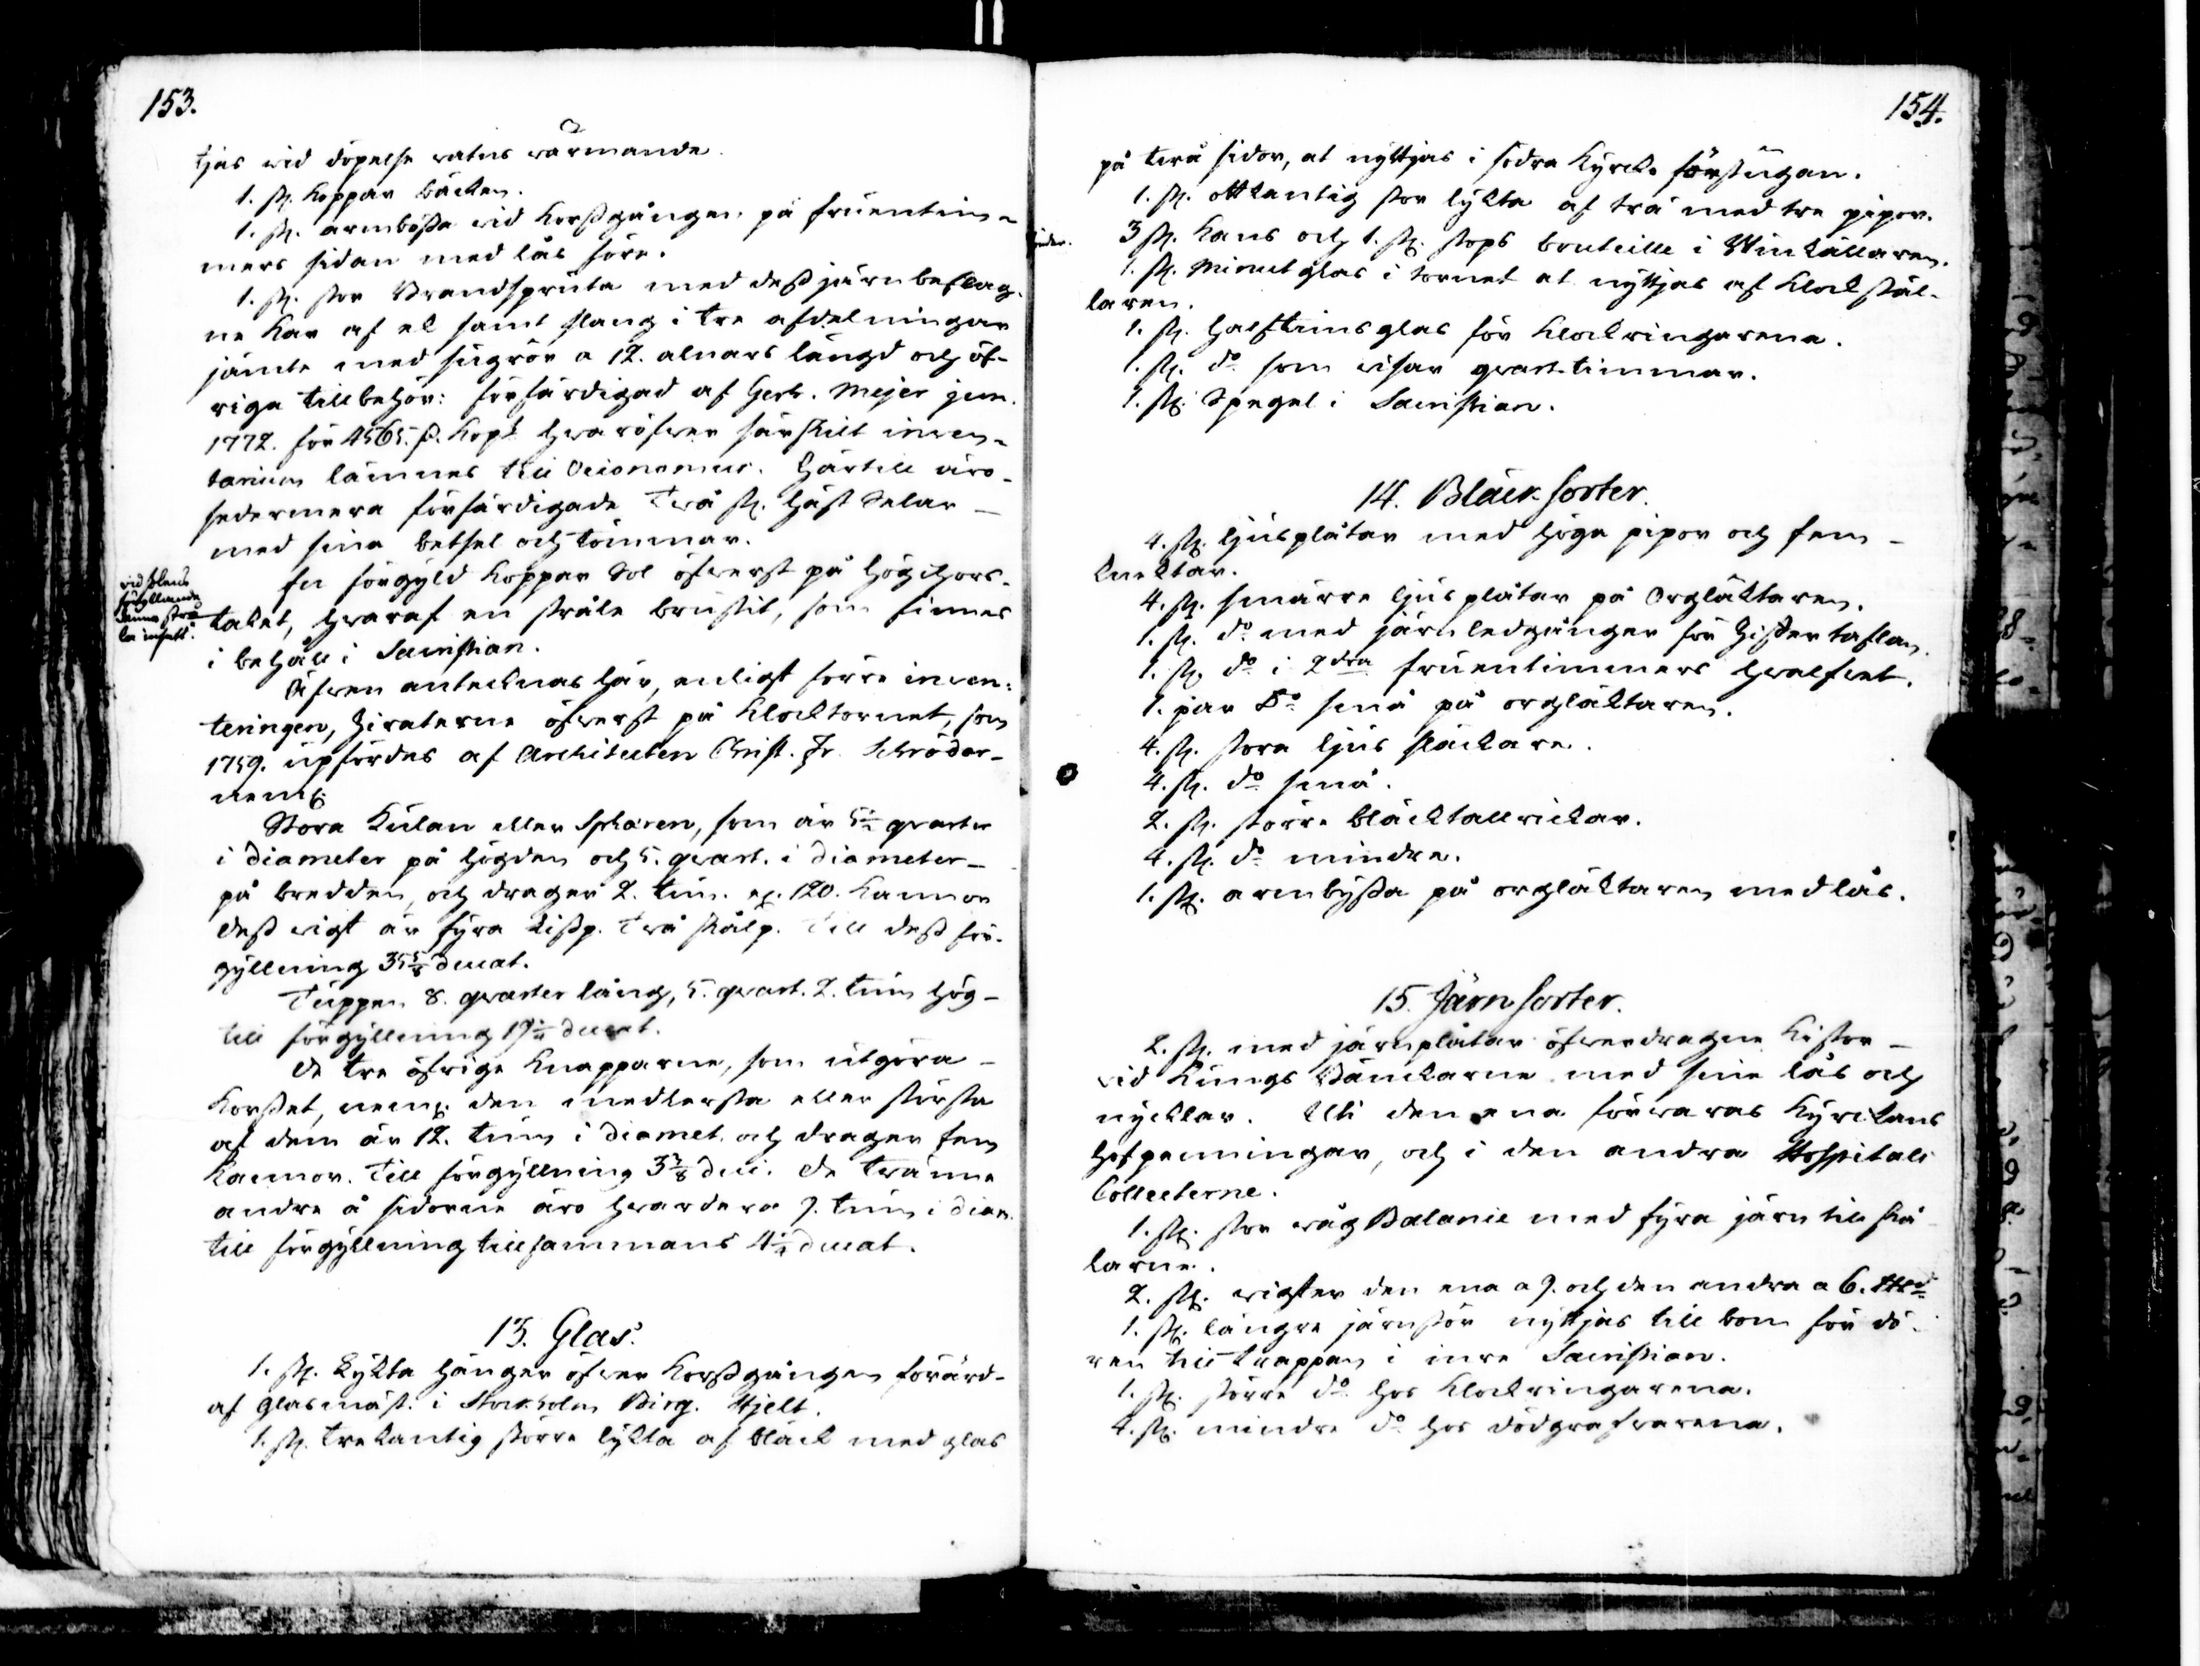 153.
tjas wid döpelse vatns wärmande.
1. st. Koppar bäcken.
1. st. armbössa wid Korssgången på fruentim-
mers sidan med lås före.
1. st. stor Brandspruta med dess järnbeslag-
ne Kar af ek samt slang i tre afdelningar
jämte med sugrör a 12. alnars längd och öf-
riga tillbehör: förfärdigad af Gerh. Mejer jun.
1772. för 4565. d. Kopt hwaröfwer särskilt inven-
tarium lämnes till Oeconomus. Härtill äro
sedermera förfärdigade Twå st. häst Selar
med sina betsel och tömmar.
En förgyld Koppar Sol öfwerst på högchors-
taket, hwaraf en stråle brustit, som finnes
i behåll i Sacristian.
wid
förgyllande
denna strå-
le insatt.
Äfwen antecknas här, enligt förre inven-
teringen, Ziraterne öfwerst på Klocktornet, som
1759. upfördes af Architecten Christ. Fr. Schröder
neml.
Stora Kulan eller Sphæren, som är 5½ qvarter
i diameter på högden och 5. qvart. i diameter
på bredden, och drager 2. tun. 120. Kannor
dess wigt är fyra Lissp. Twå skålp. Till dess för-
gyllning 35⅝ ducat.
Tuppen 8. qvarter lång, 5. qvart. 2. tum hög
till förgyllning ducat.
De tre öfrige Knapparne, som utgöra
Korsset, neml. den medlersta eller största
af dem är 12. tum i diamet. och drager fem
Kannor. Till förgyllning 3⅞ duc. De twänne
andre å sidorne äro hwardera 9. tum i diam.
till förgyllning tillsammans ducat.
13. Glas.
1. st. Lykta hänger öfwer Korssgången förärd
af Glasmäst. i Stockholm Birg. Hjelt.
1. st. trekantig större lykta af bläck med glas
154.
på twå sidor, at nyttjas i södra Kyrck. förstugan.
1. st. ottkantig stor lykta af trä med tre pipor.
3 st. Kans och 1. st. stops bouteille i Winkällaren.
1. st. Minutglas i tornet at nyttjas af Klockstäl-
laren.
1. st. halftimsglas för Klockringarena.
1. st. do som wisar qwart-timmar.
1. st. Spegel i Sacristian.
14. Bläck sorter.
4. st. ljusplåtar med höga pipor och fem
knecktar.
4. st. smärre ljusplåtar på Orgläktaren.
1. st. do med järnledgånger för Ziffertaflan.
1. st. do i 2dra fruentimmers hwalfwet.
1. par do små på orgläktaren.
4. st. stora ljus släckare.
4. st. do små.
2. st. större bläcktallrickar.
4. st. do mindre.
1. st. armbyssa på orgläktaren med lås.
15. Järn sorter.
2. st. med järnplåtar öfwerdragne Kistor
wid Kungs Bänckarne med sine lås och
nycklar. Uti den ena förwaras Kyrckans
hofpenningar, och i den andra Hospitals
Collecterne.
1. st. stor wåg Balance med fyra järn till skå-
larne.
2. st. wigter den ena a 9. och den andra a 6.
1. st. längre järnstör nyttjas till bom för dö-
ren till trappan i inre Sacristian.
1. st. större do hos Klockringarena.
4. st. mindre do hos dödgrafwarena.